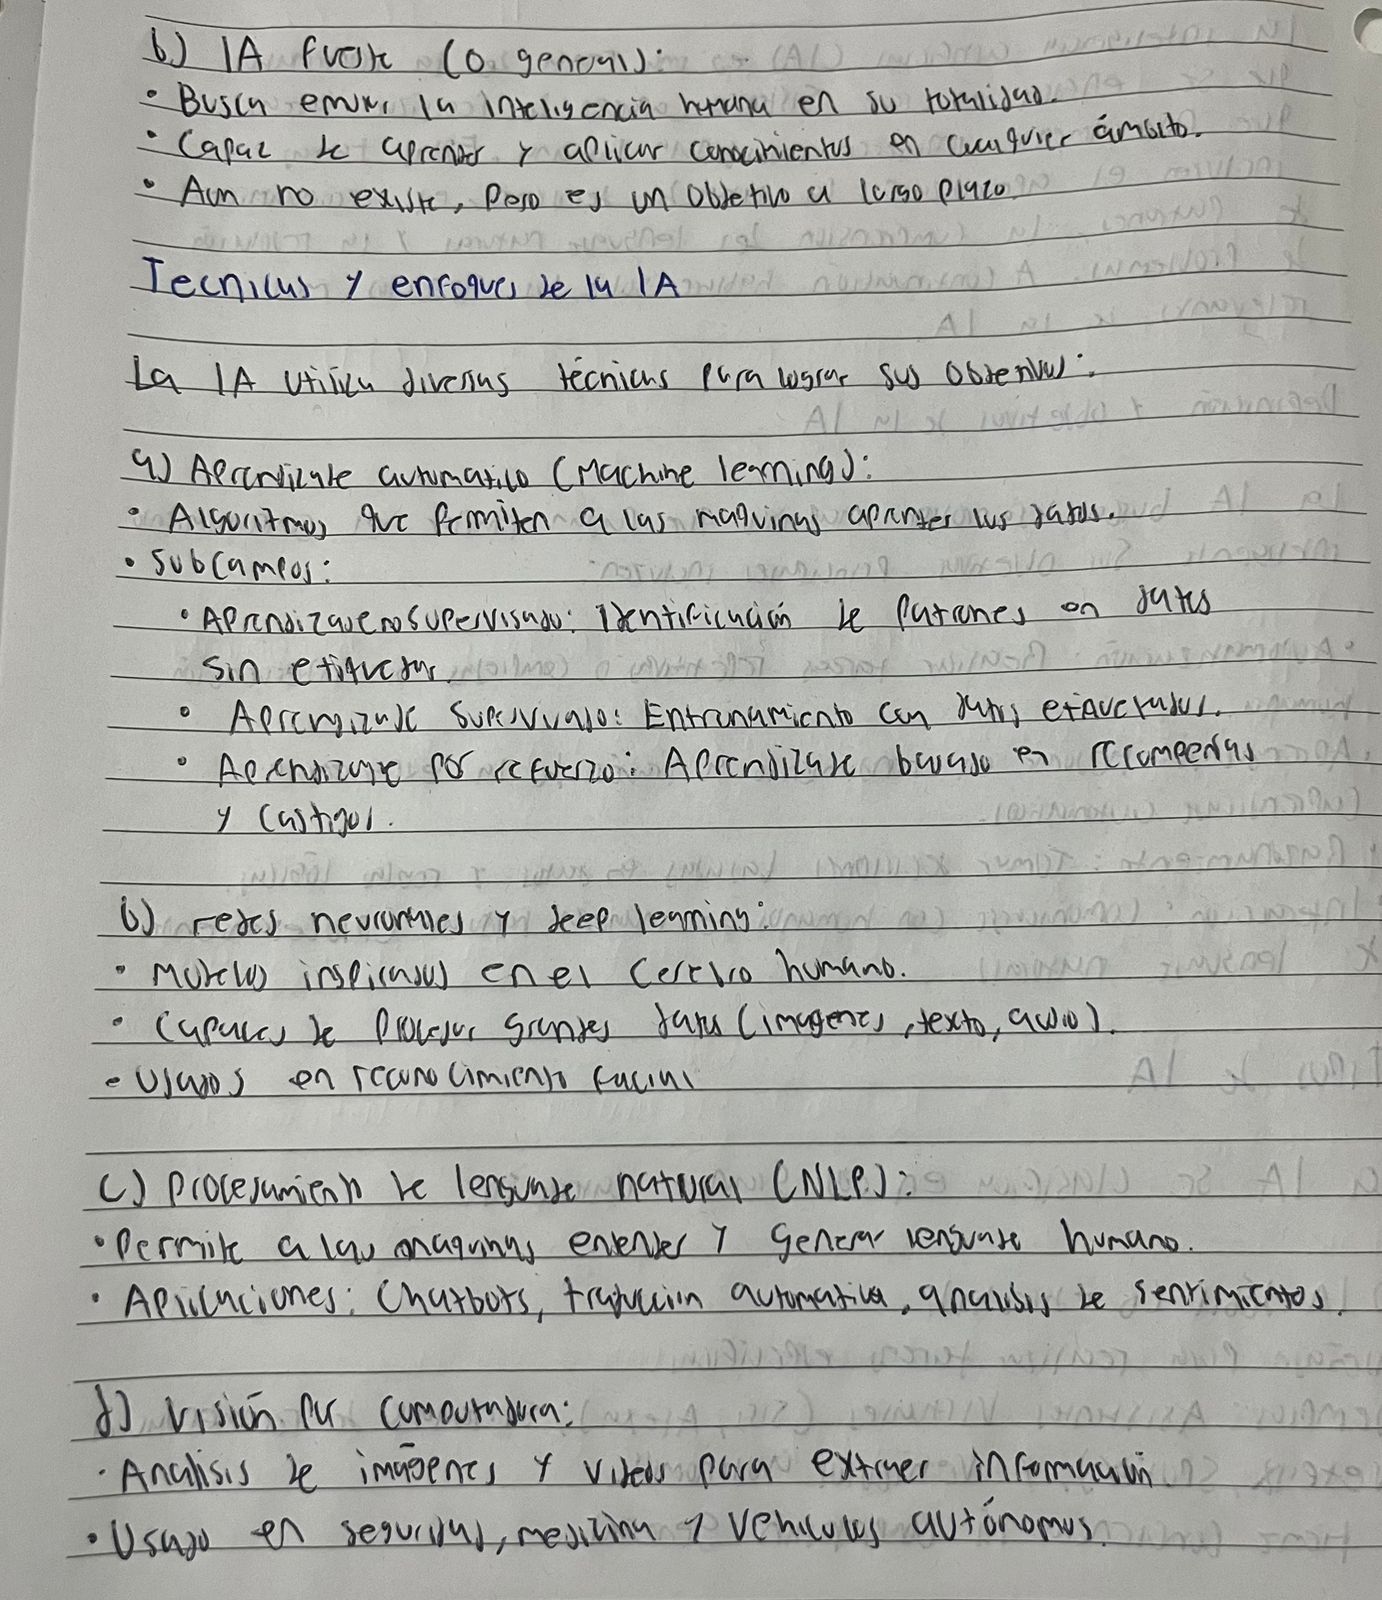 b) IA fuerte (o general):
• Busca emular la inteligencia humana en su totalidad.
• Capaz de aprender y aplicar conocimientos en cualquier ámbito.
• Aun no existe, pero es un objetivo a largo plazo.
Tecnicas y enfoques de la IA
La IA utiliza diversas técnicas para lograr sus objetivos:
a) Aprendizaje automatico (Machine learning):
• Algoritmos que permiten a las maquinas aprender los datos.
• Subcampos:
• Aprendizaje no supervisado: Identificación de patrones en datos
sin etiquetar.
• Aprendizaje supervisado: Entrenamiento con datos etiquetados.
• Aprendizaje por refuerzo: Aprendizaje basado en recompensas
y castigos.
b) redes neuronales y deep learning:
• Modelos inspirados en el cerebro humano.
• Capaces de procesar grandes datos (imagenes, texto, audio).
• Usados en reconocimiento facial
c) Procesamiento de lenguaje natural (NLP):
• Permite a las maquinas entender y generar lenguaje humano.
• Aplicaciones: Chatbots, traduccion automatica, analisis de sentimientos.
d) Visión por computadora:
• Analisis de imágenes y videos para extraer información
• Usado en seguridad, medizina y vehiculos autónomos.